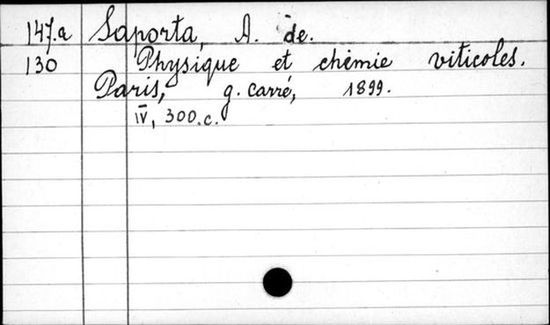 147.a Saporta, A. de.
130 Physique et chimie viticoles.
Paris, g. Carré, 1899.
IV, 300.c.